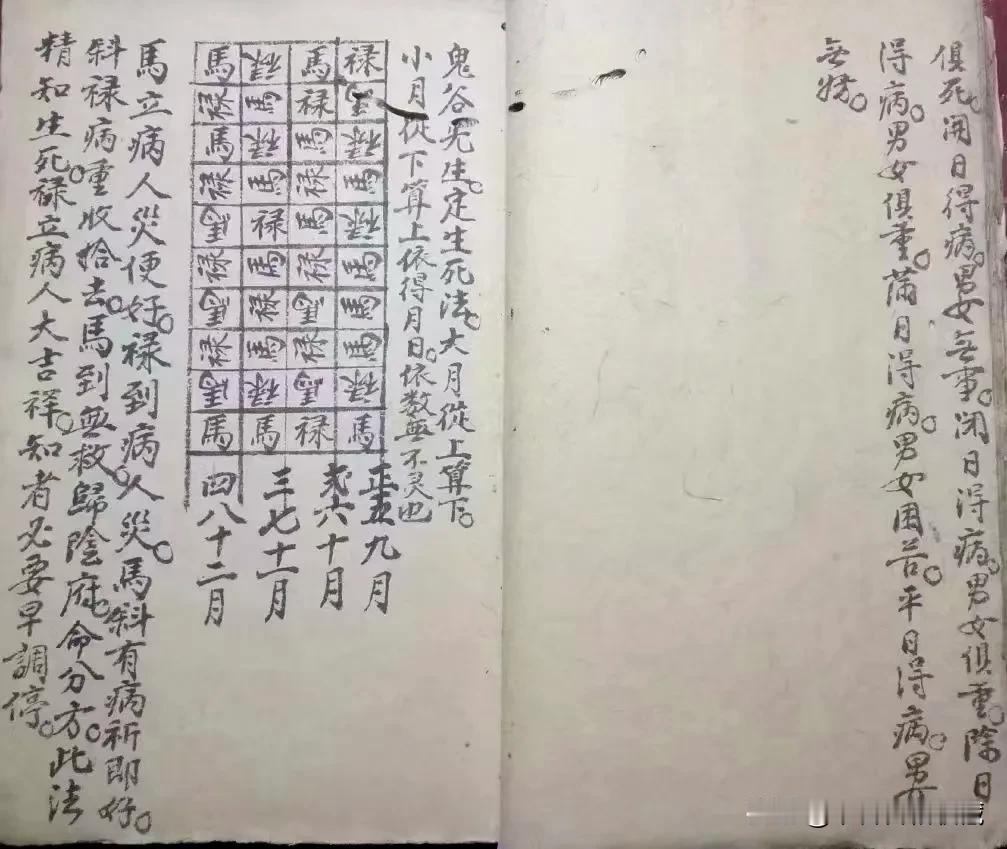 俱死。開日得病。男女無事。閉日得病。男女俱重。除日
得病。男女俱重。蒲日得病。男女困苦。平日得病。男女
無妨。
鬼谷先生。定生死法。大月從上算下。
小月從下算上依得月日。依数無不灵也
禄馬禄馬禄馬馬馬禄馬
正五九月
馬禄馬禄馬禄馬禄馬禄
弍六十月
禄馬禄馬禄馬禄馬禄馬
三七十一月
馬禄馬禄馬禄馬禄馬馬
四八十二月
馬立病人災便好。禄到病人災。馬斜有病祈即好。
斜禄病重收拾去。馬到無救歸陰府。命分方。此法
精知生死。禄立病人大吉祥。知者必要早調停。